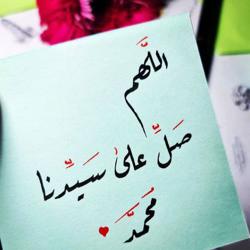 اللَّهم
صَلِّ علىٰ سَيِّدنا
مُحمدَّ